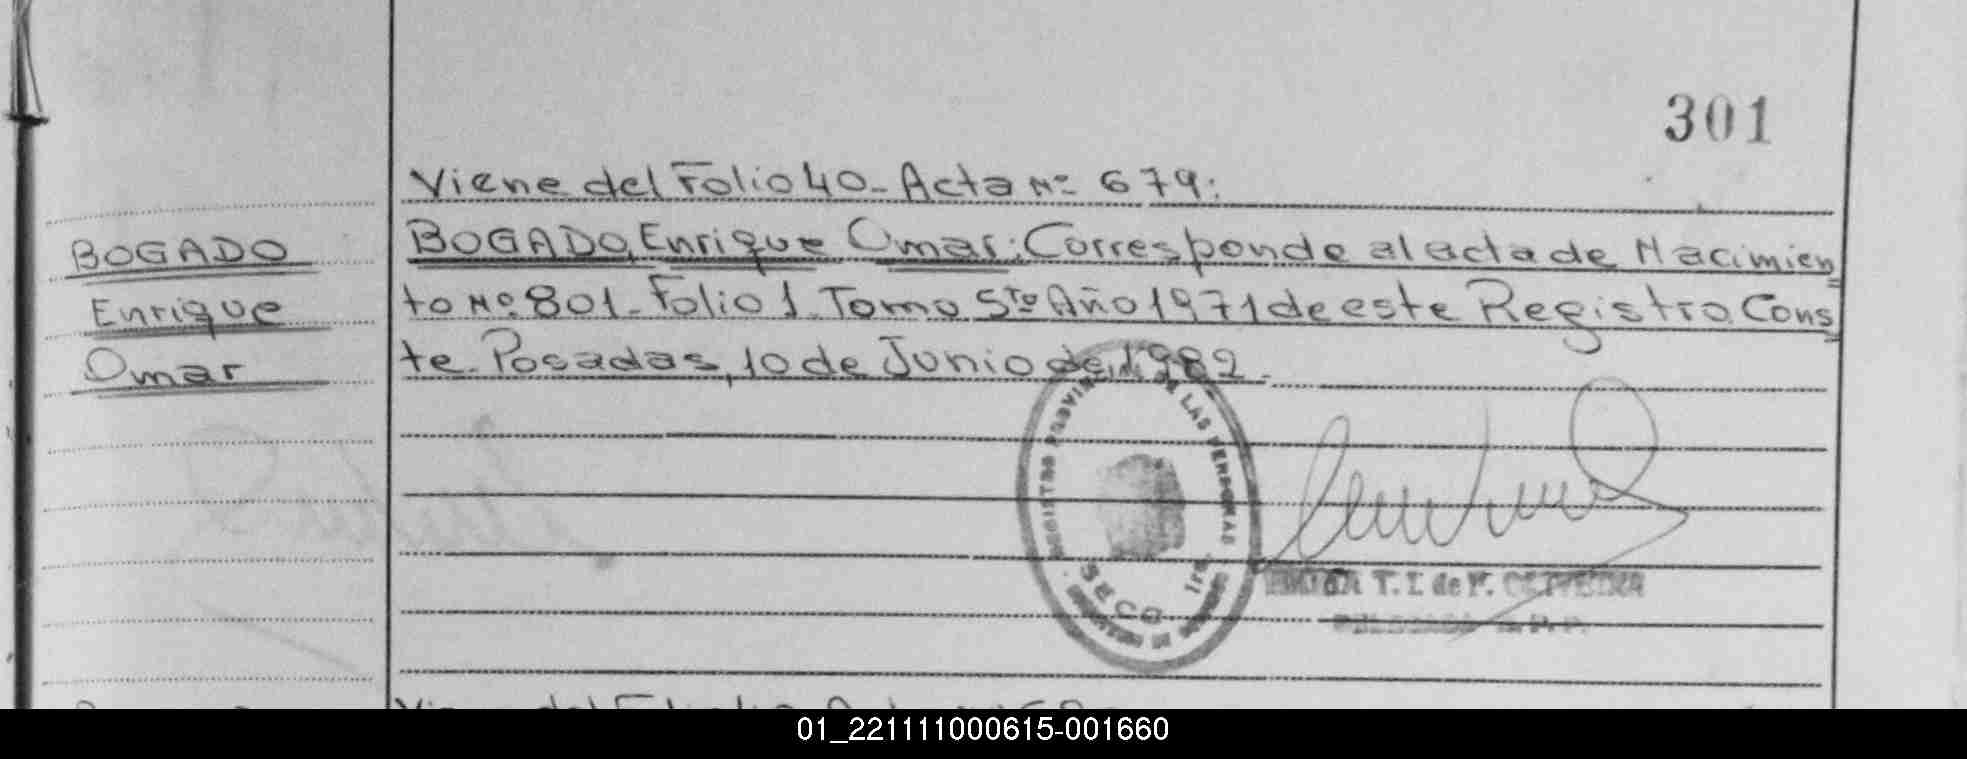 301
Viene del Folio 40 - Acta Nº 679:
BOGADO
Enrique
Omar
BOGADO, Enrique Omar: Corresponde al acta de Nacimien
to Nº 801 - Folio 1 Tomo 5to Año 1971 de este Registro. Cons
te. Posadas, 10 de Junio de 1982.
REGISTRO DE LAS PERSONAS
SECC 1ra.
T. I. de
01_221111000615-001660